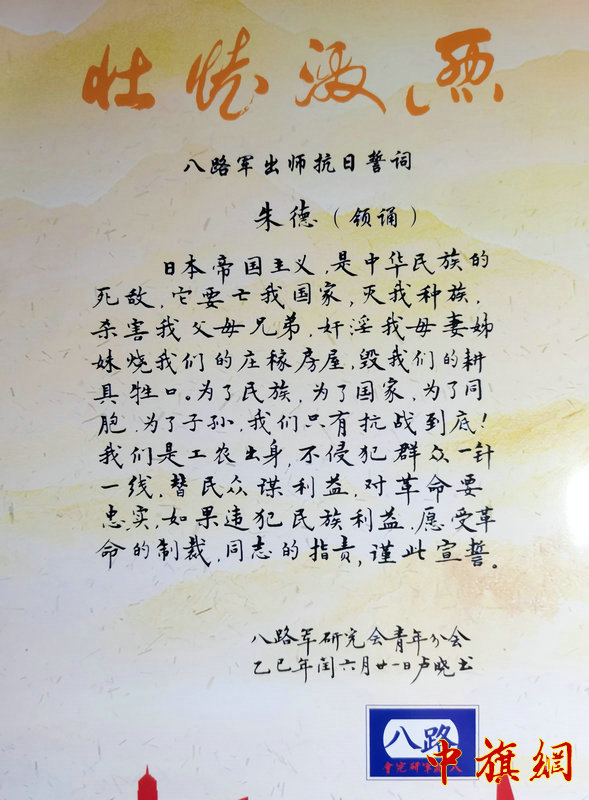 壮怀激烈
八路军出师抗日誓词
朱德（领诵）
日本帝国主义，是中华民族的
死敌，它要亡我国家，灭我种族，
杀害我父母兄弟，奸淫我母妻姊
妹烧我们的庄稼房屋，毁我们的耕
具牲口。为了民族，为了国家，为了同
胞，为了子孙，我们只有抗战到底！
我们是工农出身，不侵犯群众一针
一线，替民众谋利益，对革命要
忠实，如果违犯民族利益，愿受革
命的制裁，同志的指责，谨此宣誓。
八路军研究会青年分会
乙巳年闰六月廿一日卢晓书
八路
會究研軍路八
中旗網